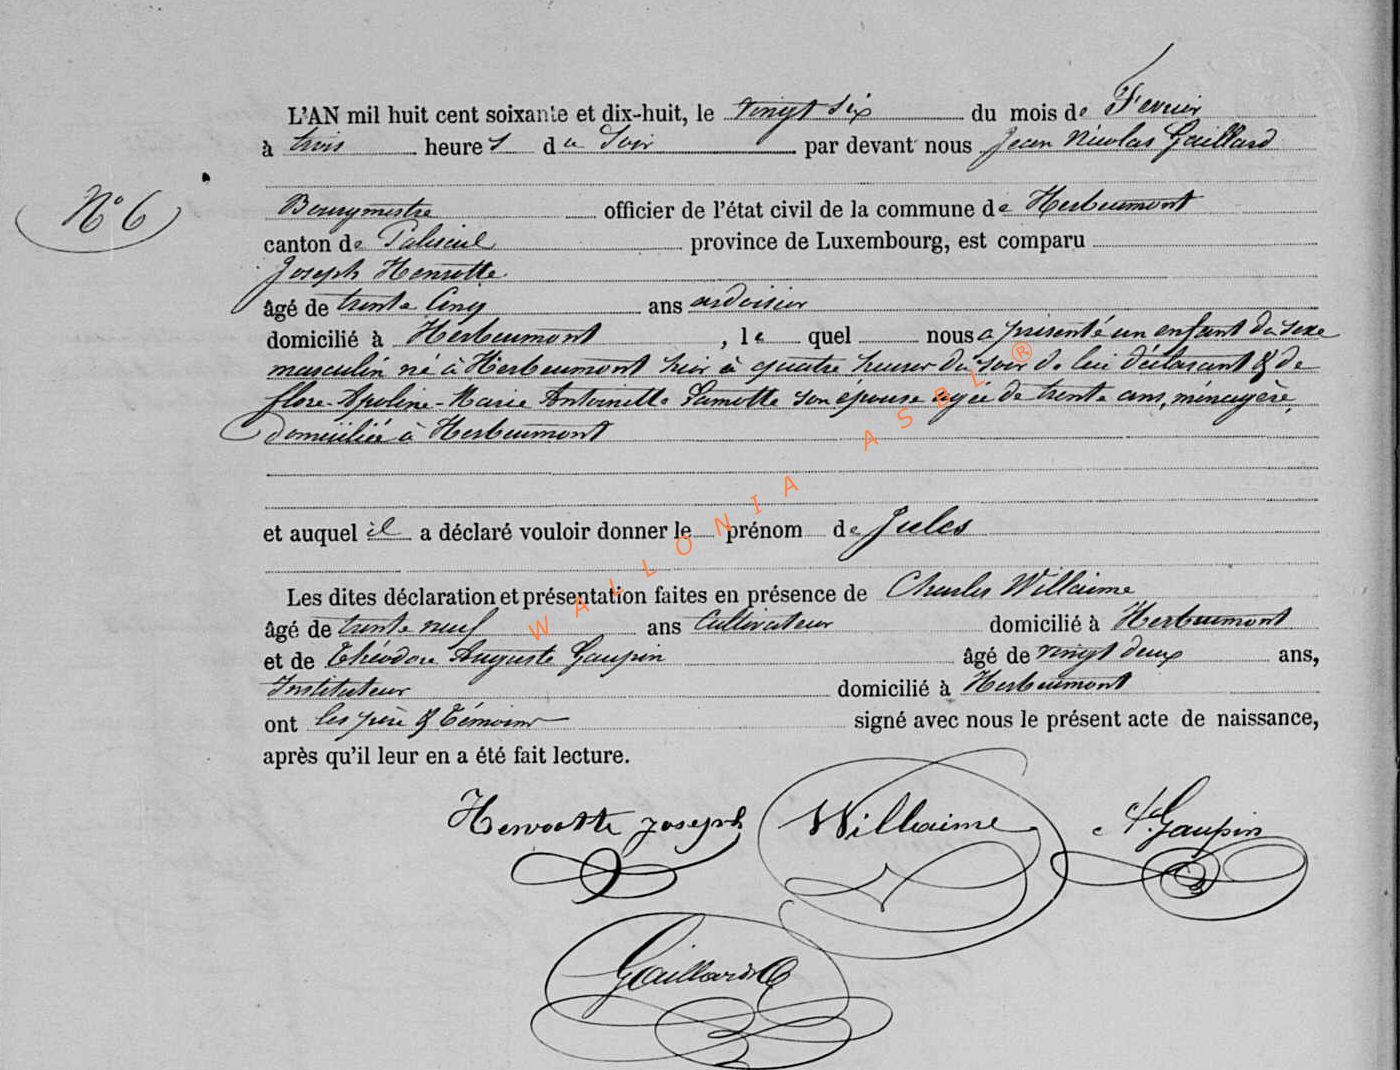 L'AN mil huit cent soixante et dix-huit, le vingt six du mois de Fevrier
à trois heures du Soir par devant nous Jean Nicolas Gaillard
N° 6
Bourgmestre officier de l'état civil de la commune de Herbeumont
canton de Paliseul province de Luxembourg, est comparu
Joseph Henrotte
âgé de trente Cinq ans ardoisier
domicilié à Herbeumont, lequel nous a présenté un enfant du sexe
masculin né à Herbeumont hier à quatre heures du soir de lui déclarant & de
flore-Apoline-Marie Antoinette Lamotte son épouse agée de trente ans, ménagère,
domiciliée à Herbeumont
et auquel il a déclaré vouloir donner le prénom de Jules
Les dites déclaration et présentation faites en présence de Charles Willaime
âgé de trente neuf ans Cultivateur domicilié à Herbeumont
et de Théodore Auguste Gaupin âgé de vingt deux ans,
Instituteur domicilié à Herbeumont
ont les père & Témoins signé avec nous le présent acte de naissance,
après qu'il leur en a été fait lecture.
Henrotte Joseph Willaime Gaupin
Gaillard
WALLONIA ASBL ®